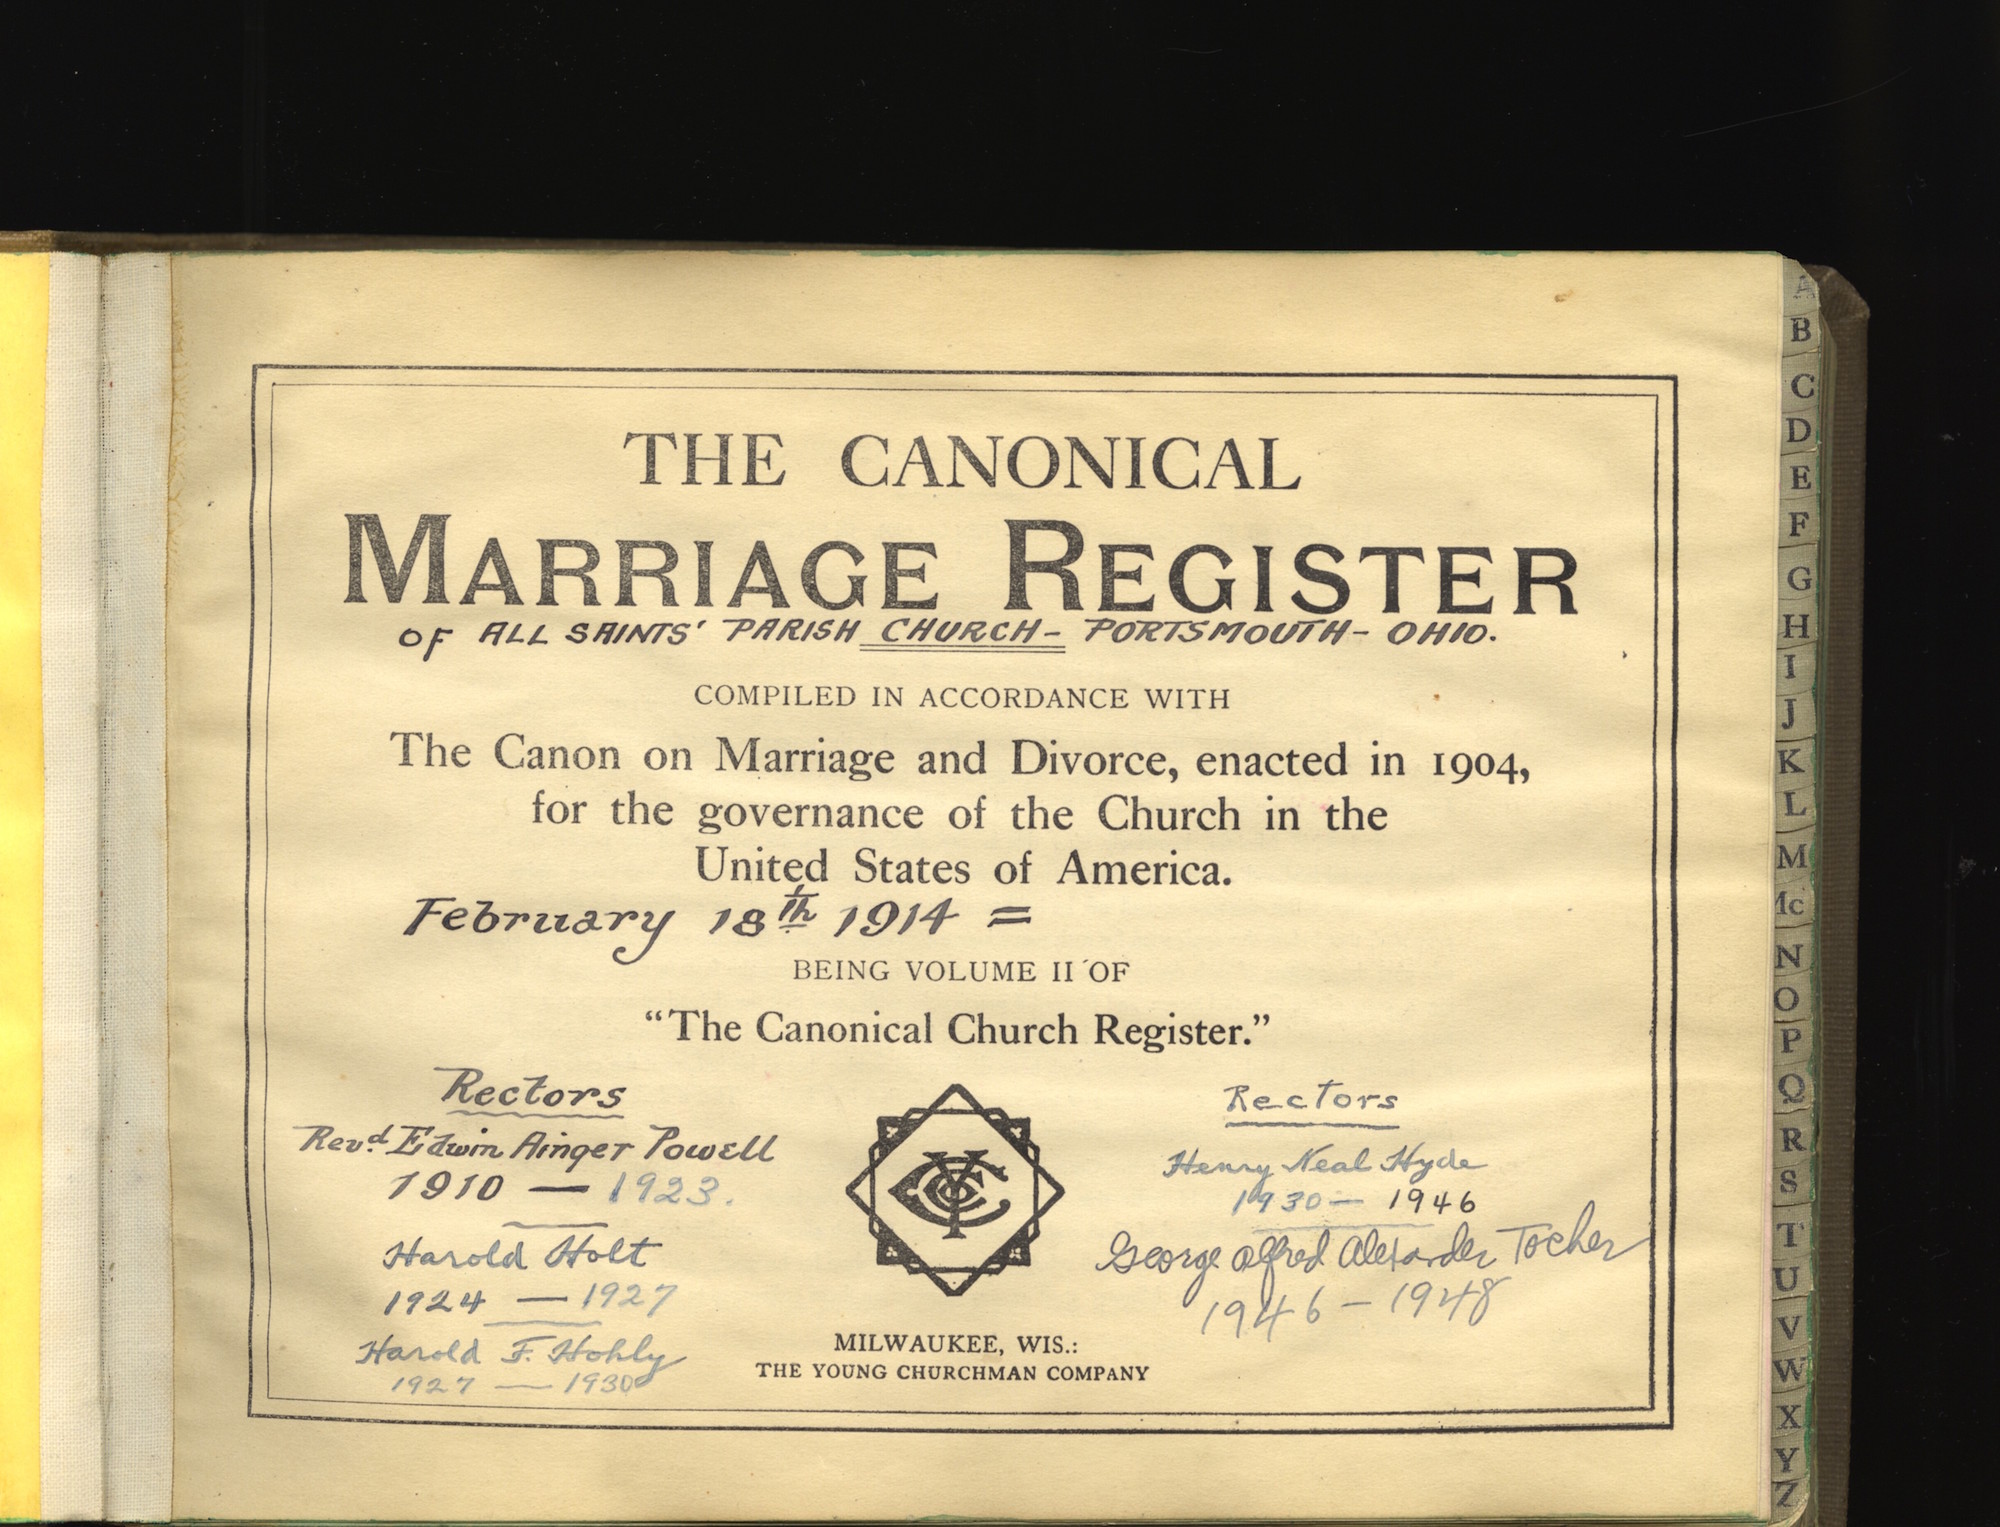 THE CANONICAL
MARRIAGE REGISTER
OF ALL SAINTS' PARISH CHURCH - PORTSMOUTH - OHIO.
COMPILED IN ACCORDANCE WITH
The Canon on Marriage and Divorce, enacted in 1904,
for the governance of the Church in the
United States of America.
February 18th 1914 =
BEING VOLUME II OF
"The Canonical Church Register."
Rectors
Revd. Edwin Ainger Powell
1910 — 1923.
Harold Holt
1924 — 1927
Harold F. Hohly
1927 — 1930
YCC
MILWAUKEE, WIS.:
THE YOUNG CHURCHMAN COMPANY
Rectors
Henry Neal Hyde
1930 — 1946
George Alfred Alexander Tocher
1946 – 1948
A
B
C
D
E
F
G
H
I
J
K
L
M
Mc
N
O
P
Q
R
S
T
U
V
W
X
Y
Z